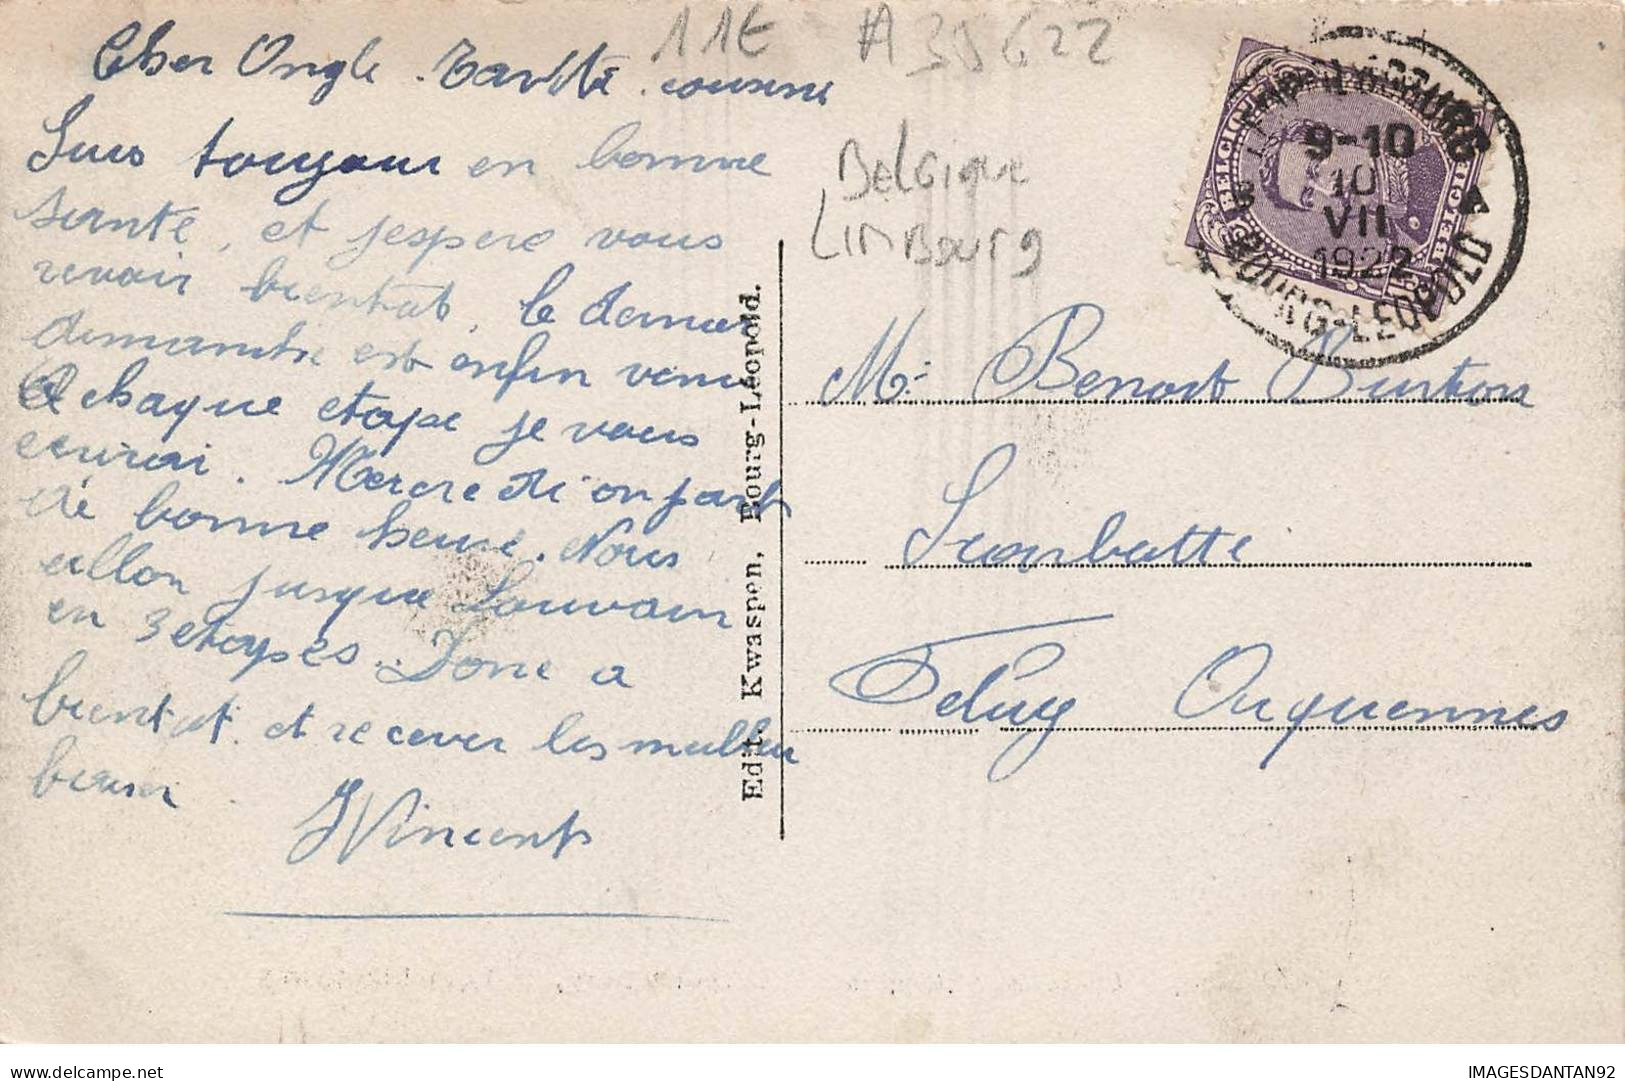 11€ A35622
Belgique
Limbourg
Cher Ongle Tavite cousine
Suis toujour en bonne
sante, et jespere vous
revoir bientot, le dernier
dimanche est enfin venu
A chaque etape je vous
ecrirai. Mercredi on part
de bonne heure. Nous
allon jusque Louvain
en 3 etapes. Donc a
bientot et recever les meilleur
baiser
JVincent
Edit. Kwaspen, Bourg-Léopold.
BELGIQUE BELGIE
9-10
10
VII
1922
BOURG-LEOPOLD
Mr Benoit Burton
Scarbatte
Feluy Arquennes
IMAGESDANTAN92